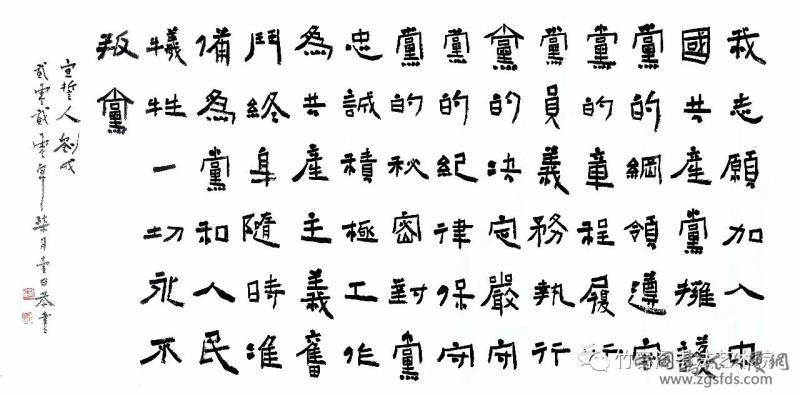 我志願加入中
國共産黨擁護
黨的綱領遵守
黨的章程履行
黨員義務執行
黨的决定嚴守
黨的紀律保守
黨的秘密對黨
忠誠積極工作
為共産主義奮
鬥終身隨時准
備為黨和人民
犧牲一切永不
叛黨
宣誓人劉
貳零貳零年柒月壹日恭書
www.zgsfds.com